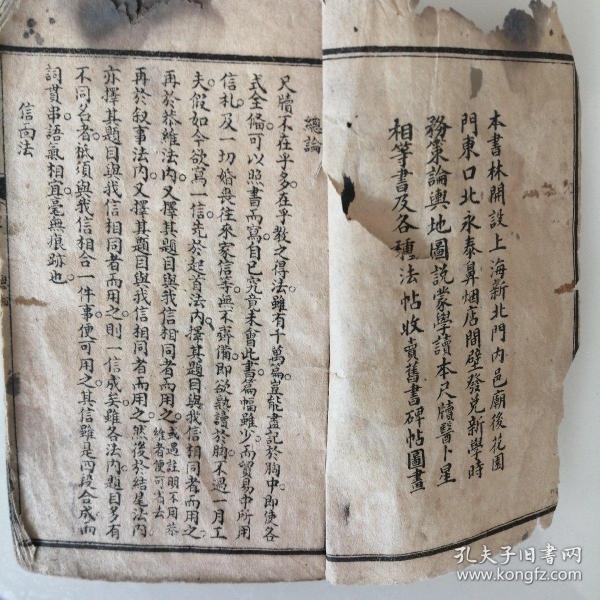 本書林開設上海新北門內邑廟後花園
門東口北永泰鼻烟店間壁發兌新學時
務策論輿地圖說蒙學讀本尺牘醫卜星
相等書及各種法帖收賣舊書碑帖圖畫
總論
尺牘不在乎多在乎教之得法雖有千萬篇豈能盡記於胸中即使各
式全備可以照書而寫自己究竟未曾此書篇幅雖少而貿易中所用
信札及一切婚喪往來家信等無不齊備即欲熟讀於胸不過一月工
夫假如今欲寫一信先於起首法內擇其題目與我信相同者而用之
再於恭維法內又擇其題目與我信相同者而用之或遇註明不用恭維者便可省去
再於叙事法內又擇其題目與我信相同者而用之然後於結尾法內
亦擇其題目與我信相同者而用之則一信成矣雖各法內題目多有
不同名者祗須與我信相合一件事便可用之其信雖是四段合成而
詞貫串語氣相宜毫無痕跡也
信面法
孔夫子旧书网
www.kongfz.com